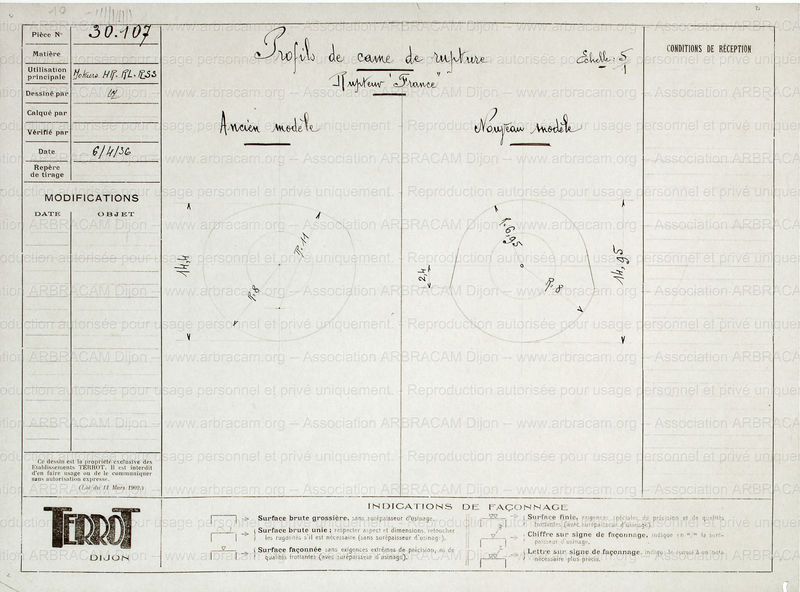 Pièce No 30.107
Matière
Utilisation principale Moteurs HR. RL. RSS
Dessiné par
Calqué par
Vérifié par
Date 6/4/36
Repère de tirage
MODIFICATIONS
DATE OBJET
Profils de came de rupture
Rupteur "France"
Échelle: 5/1
CONDITIONS DE RÉCEPTION
Ancien modèle
Nouveau modèle
14,4
R.11
R.8
R.6,95
2,4
R.8
14,95
Ce dessin est la propriété exclusive des
Etablissements TERROT. Il est interdit
d'en faire usage ou de le communiquer
sans autorisation expresse.
(Loi du 11 Mars 1902.)
TERROT
DIJON
INDICATIONS DE FAÇONNAGE
Surface brute grossière, sans surépaisseur d'usinage.
Surface brute unie; respecter aspect et dimensions, retoucher
les rugosités s'il est nécessaire (sans surépaisseur d'usinage).
Surface façonnée sans exigences extrêmes de précision, ni de
qualités frottantes (avec surépaisseur d'usinage).
Surface finie, exigences spéciales de précision et de qualités
frottantes (avec surépaisseur d'usinage).
Chiffre sur signe de façonnage, indique en m/m la surépaisseur d'usinage.
Lettre sur signe de façonnage, indique le renvoi à une note
nécessaire plus précis.
www.arbracam.org – Association ARBRACAM Dijon – www.arbracam.org – Association ARBRACAM Dijon
Reproduction autorisée pour usage personnel et privé uniquement.